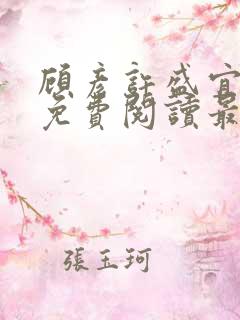 顧彥許盛宜
免費閱讀最
張玉珂